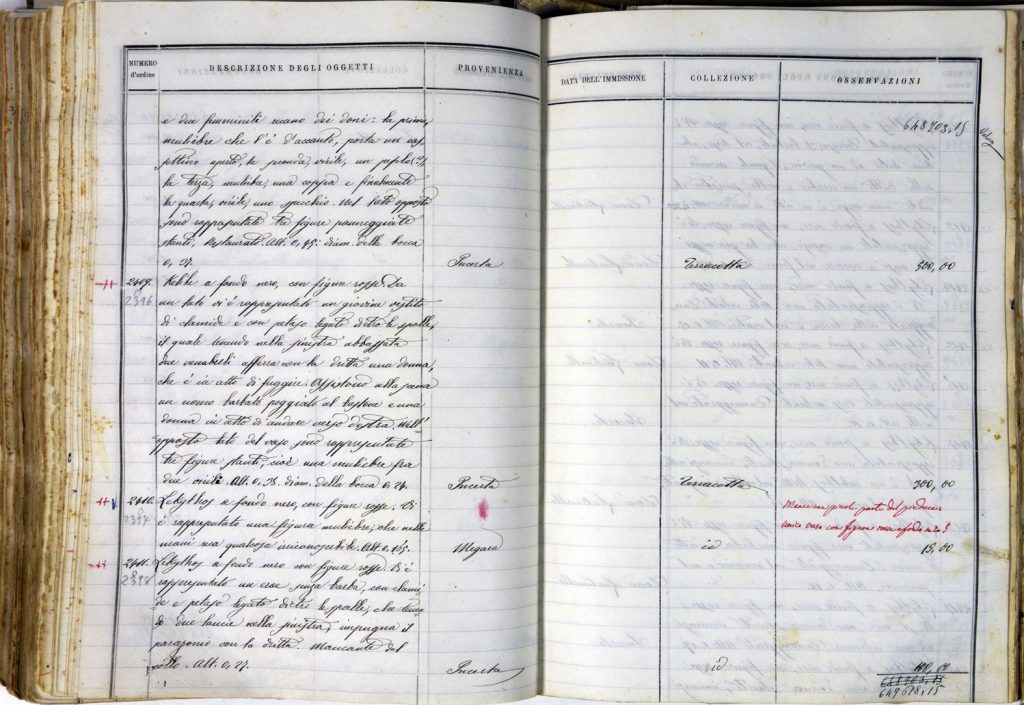 NUMERO d'ordine
DESCRIZIONE DEGLI OGGETTI
PROVENIENZA
DATA DELL'IMMISSIONE
COLLEZIONE
OSSERVAZIONI
648703,15
e due femminili recano dei doni: la prima,
muliebre che l'è d'accanto, porta un cas
settino aperto, la seconda, virile, un peplo (?),
la terza, muliebre, una coppia e finalmente
la quarta, virile, uno specchio. Nel lato opposto
sono rappresentate tre figure panneggiate
stanti. Restaurato. Alt. 0,45: diam. della bocca
0,27. Incerta Terracotta 500,00
2409. Kelebe a fondo nero, con figure rosse. Da
2396 un lato vi è rappresentato un giovine vestito
di clamide e con petaso legato dietro le spalle,
il quale tenendo nella sinistra abbassata
due venabuli afferra con la dritta una donna,
che è in atto di fuggire. Assistono alla scena
un uomo barbato poggiato al bastone e una
donna in atto di andare verso destra. Nell'
opposto lato del vaso sono rappresentate
tre figure stanti, cioè una muliebre fra
due virili. Alt. 0,28. diam. della bocca 0,24. Incerta Terracotta 300,00
2410. Lekythos a fondo nero, con figure rosse. Vi
2397 è rappresentata una figura muliebre, che nelle
mani ha qualcosa irriconoscibile. Alt. 0,15. Megara id 15,00
Manca una piccola parte del
unico vaso con figura rossa
2411. Lekythos a fondo nero con figure rosse. Vi è
2398 rappresentato un eroe senza barba, con clami
de e petaso legato dietro le spalle, che tenen
do due lance nella sinistra, impugna il
parazonio con la dritta. Mancante del
collo. Alt. 0,27. Incerta id 100,00
648703,15
649618,15